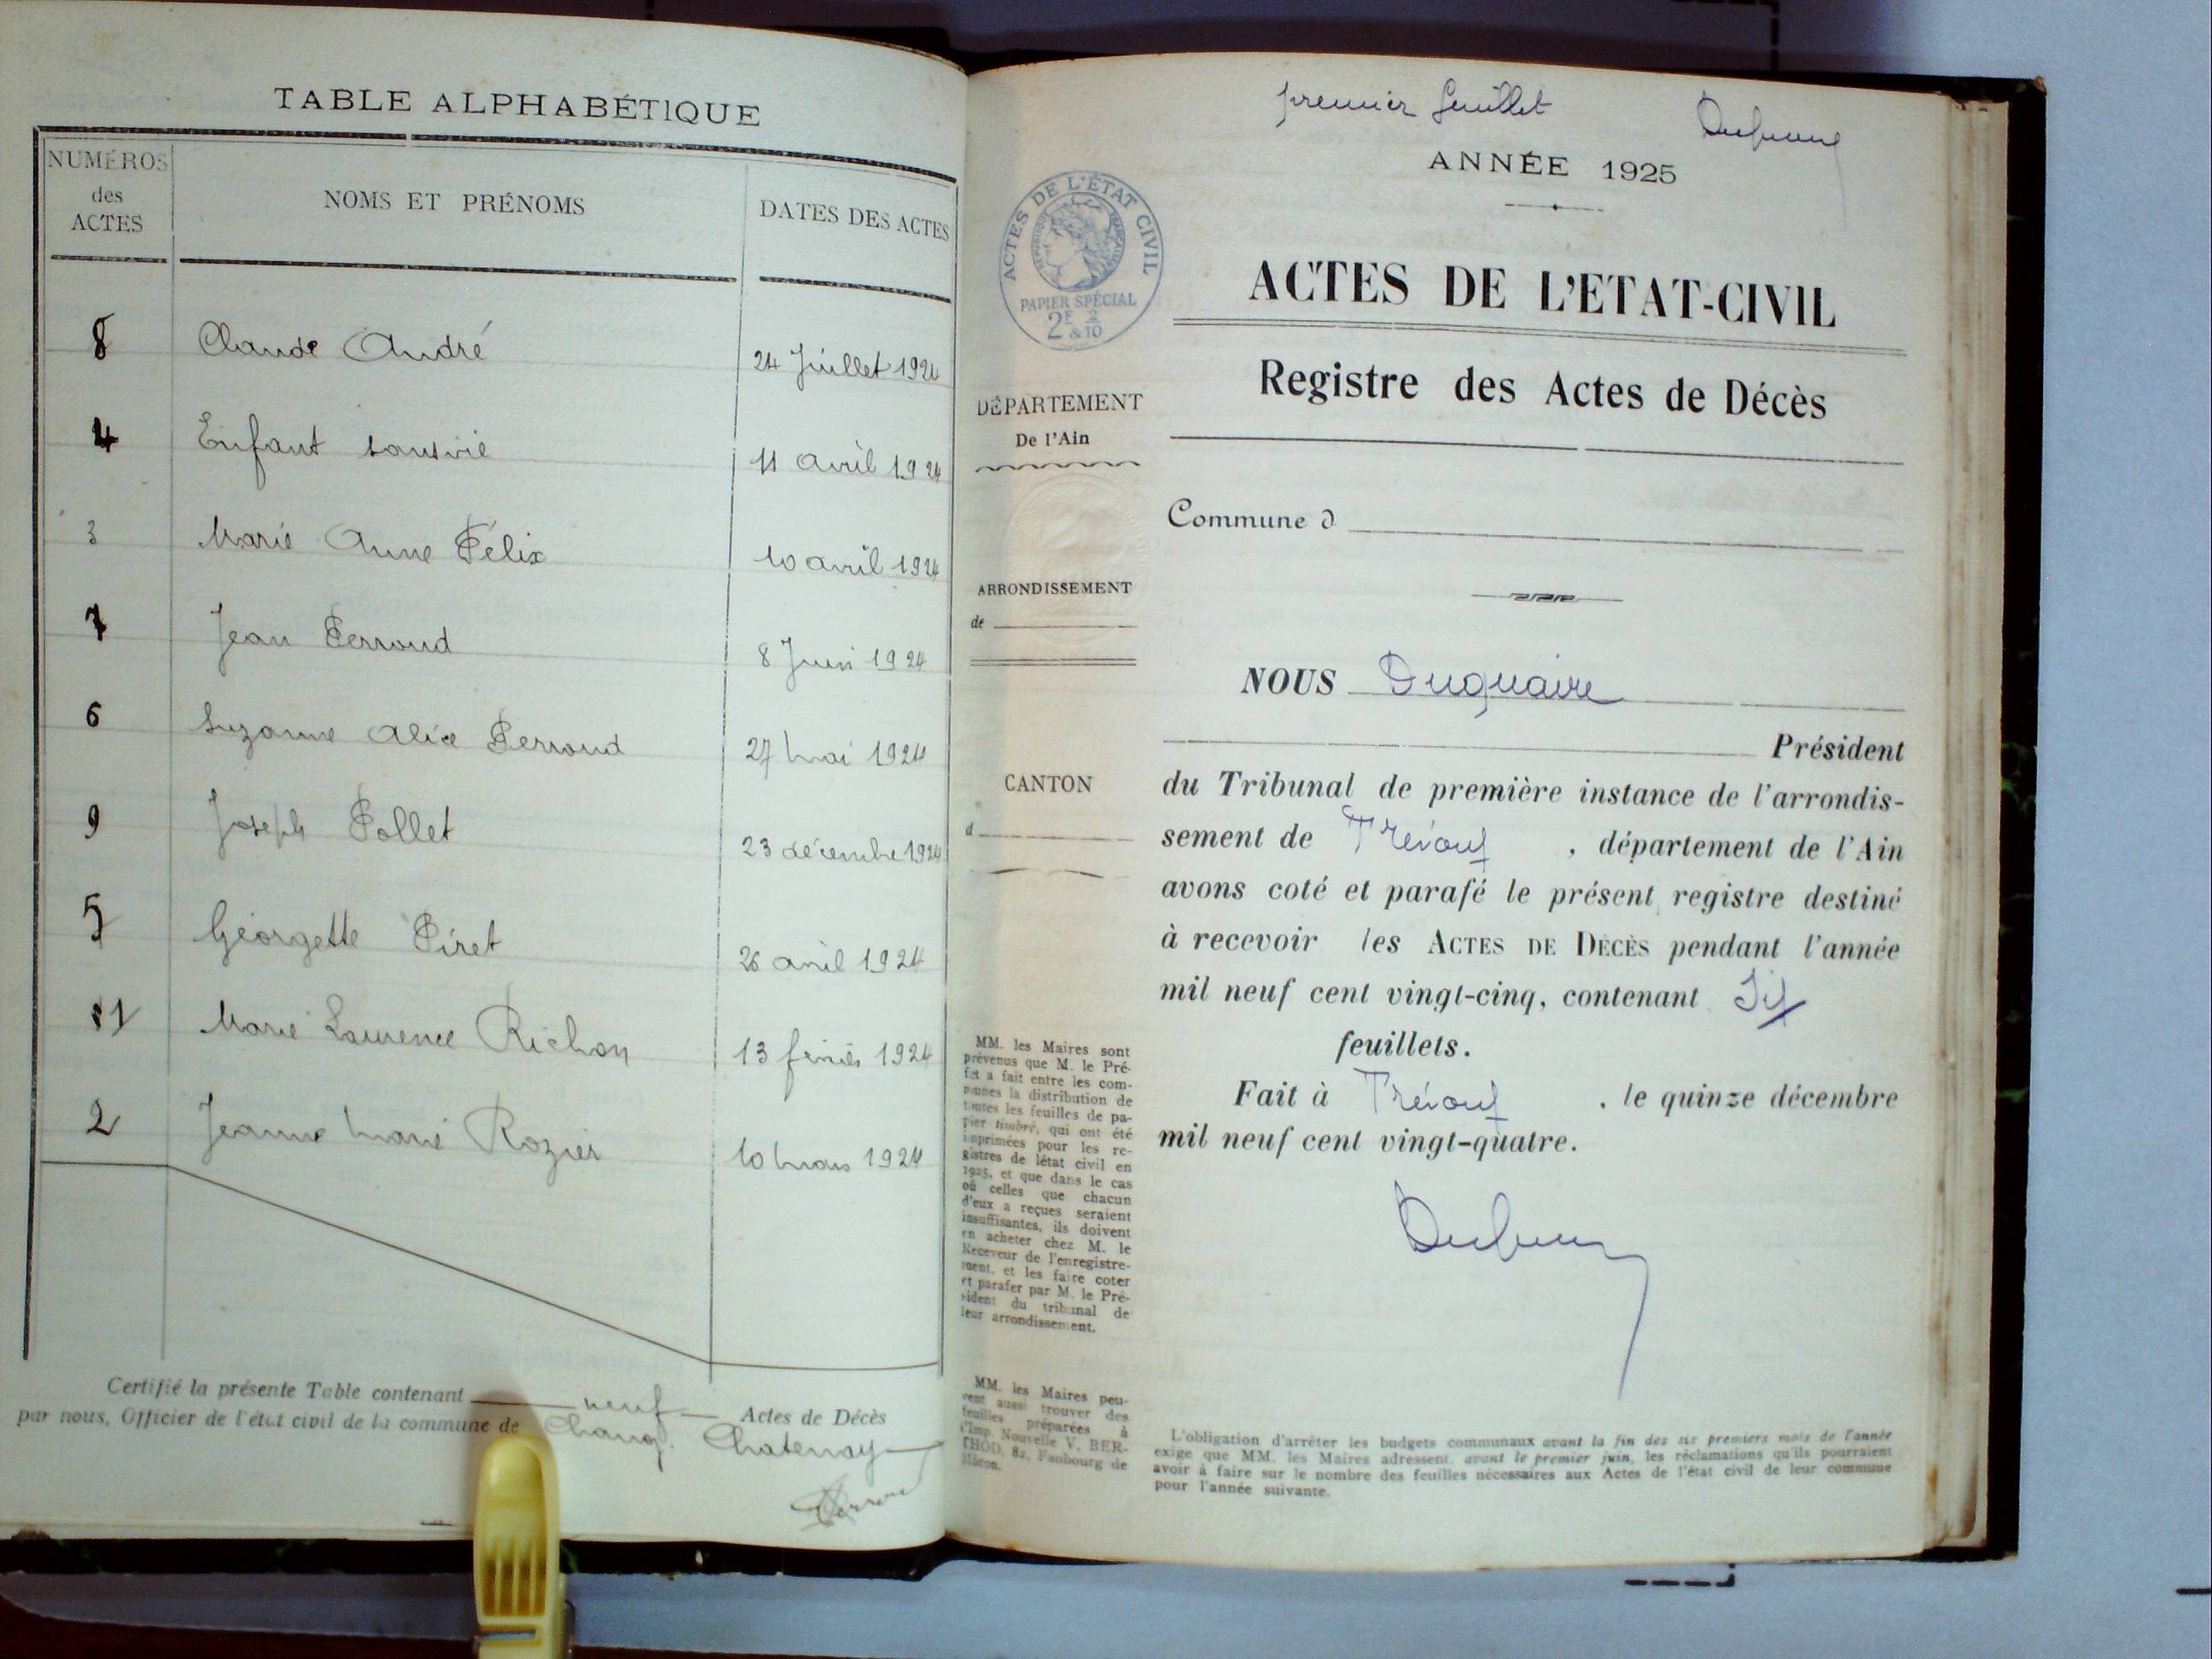 TABLE ALPHABÉTIQUE
NUMÉROS des ACTES
NOMS ET PRÉNOMS
DATES DES ACTES
8 Claude André 24 Juillet 1924
4 Enfant sans vie 11 avril 1924
3 Marie Anne Félix 10 avril 1924
7 Jean Perroud 8 Juin 1924
6 Suzanne Alice Perroud 27 mai 1924
9 Joseph Pollet 23 décembre 1924
5 Georgette Piret 26 avril 1924
1 Marie Laurence Richon 13 février 1924
2 Jeanne Marie Rozier 10 mars 1924
Certifié la présente Table contenant neuf Actes de Décès
par nous, Officier de l'état civil de la commune de Chatenay
premier feuillet
ANNÉE 1925
ACTES DE L'ÉTAT CIVIL
PAPIER SPÉCIAL
2F & 2/10
ACTES DE L'ETAT-CIVIL
Registre des Actes de Décès
DÉPARTEMENT
De l'Ain
Commune d
ARRONDISSEMENT
de
NOUS Duquaire
Président
CANTON
d
du Tribunal de première instance de l'arrondis-
sement de Trévoux , département de l'Ain
avons coté et parafé le présent registre destiné
à recevoir les ACTES DE DÉCÈS pendant l'année
mil neuf cent vingt-cinq, contenant Six
feuillets.
Fait à Trévoux , le quinze décembre
mil neuf cent vingt-quatre.
MM. les Maires sont
prévenus que M. le Pré-
fet a fait entre les com-
munes la distribution de
toutes les feuilles de pa-
pier timbré, qui ont été
imprimées pour les re-
gistres de létat civil en
1925, et que dans le cas
où celles que chacun
d'eux a reçues seraient
insuffisantes, ils doivent
en acheter chez M. le
Receveur de l'enregistre-
ment, et les faire coter
et parafer par M. le Pré-
sident du tribunal de
leur arrondissement.
MM. les Maires peu-
vent aussi trouver des
feuilles préparées à
l'Imp. Nouvelle V. BER-
THOD, 82, Faubourg de
Mâcon.
L'obligation d'arrêter les budgets communaux avant la fin des six premiers mois de l'année
exige que MM. les Maires adressent, avant le premier juin, les réclamations qu'ils pourraient
avoir à faire sur le nombre des feuilles nécessaires aux Actes de l'état civil de leur commune
pour l'année suivante.